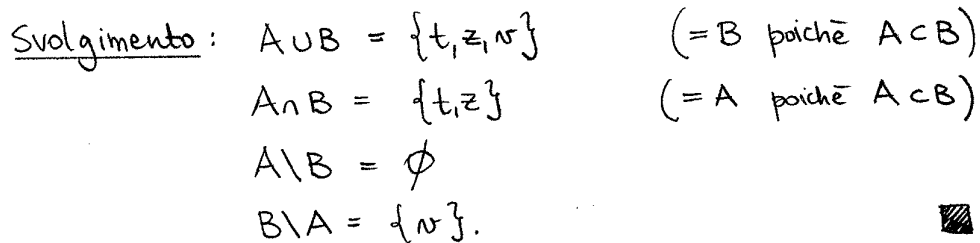 Svolgimento: A∪B = {t,z,v} (=B poichē A⊂B)
A∩B = {t,z} (=A poichē A⊂B)
A\B = ∅
B\A = {v}.